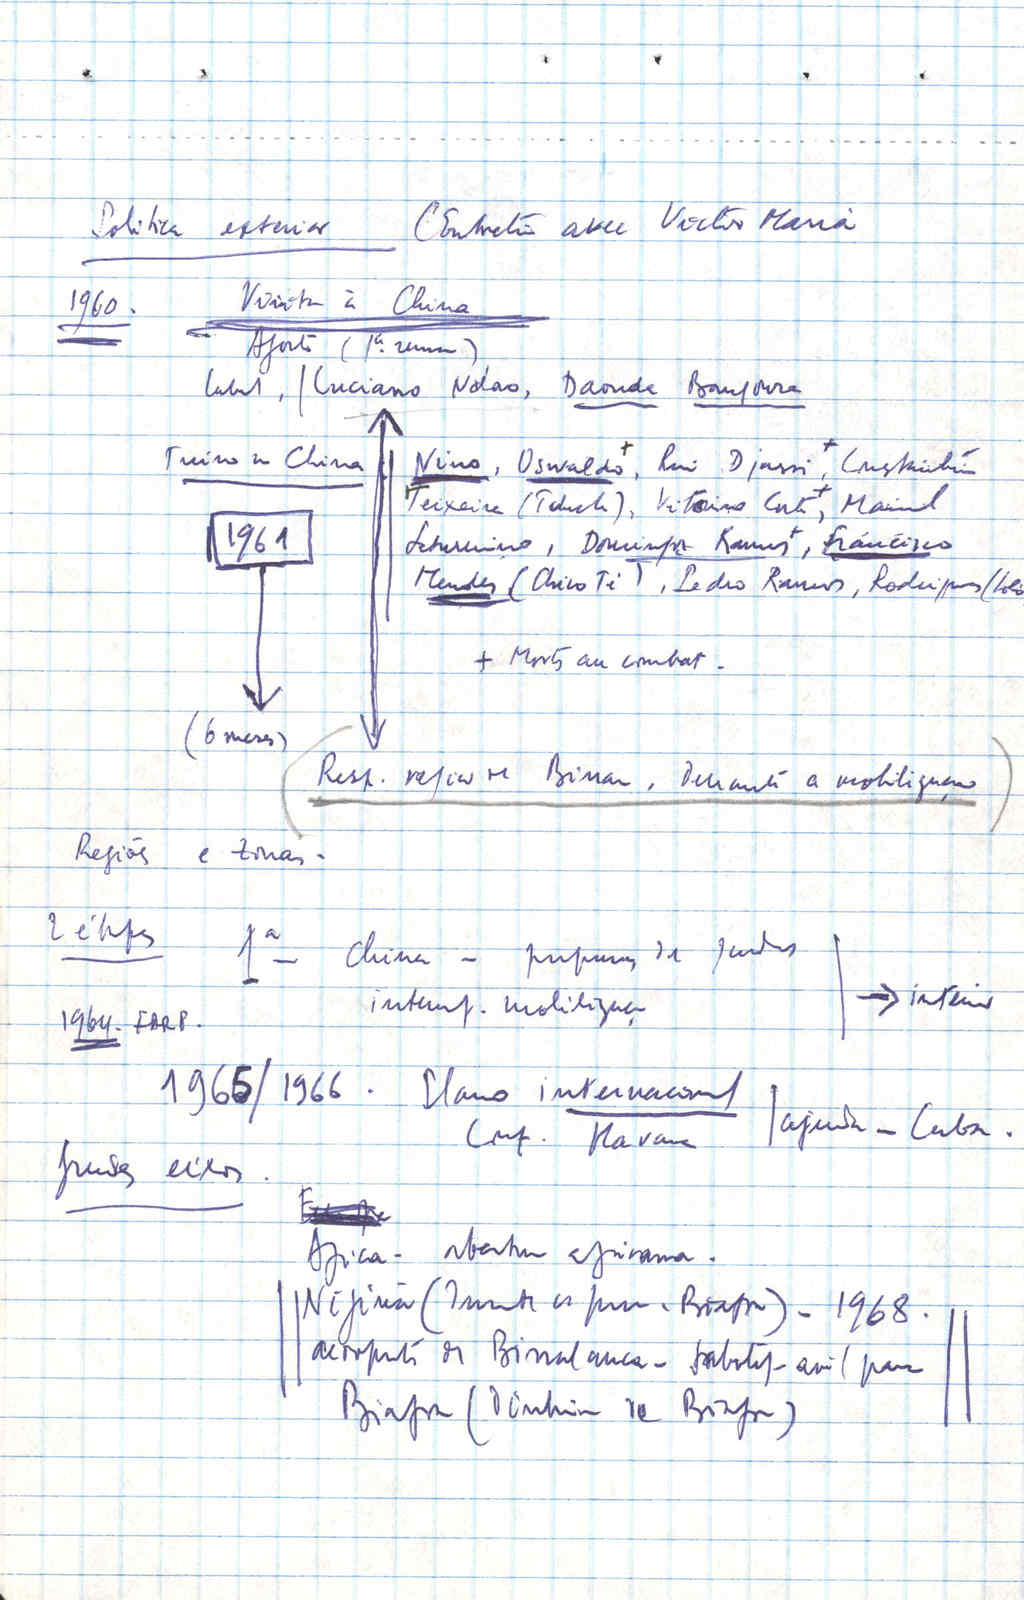 Politica exterior (Entretien avec Victor Maria
1960. Visita à China
Agosto (1ª
Cabral, Luciano Ndao, Daouda Bangoura
Treino na China Nino, Oswaldo+, Rui Djassi+, Constantino
Teixeira (Tchutchu), Vitorino Costa+, Manuel
1961 Saturnino, Domingos Ramos+, Francisco
Mendes (Chico Té), Pedro Ramos, Rodrigues
+ Morts au combat.
(6 meses)
Resp. região de Bissau, Durante a mobilização
Regiões e zonas.
2 étapes 1ª - China - de quadros
mobilização → interior
1964. FARP.
1965/1966. Plano internacional
Conf. Havana ajuda - Cuba.
grandes eixos.
Africa - abertura africana.
Nigéria (Durante a guerra Biafra) - 1968.
aeroporto de Bissalanca - avil para
Biafra ( de Biafra)